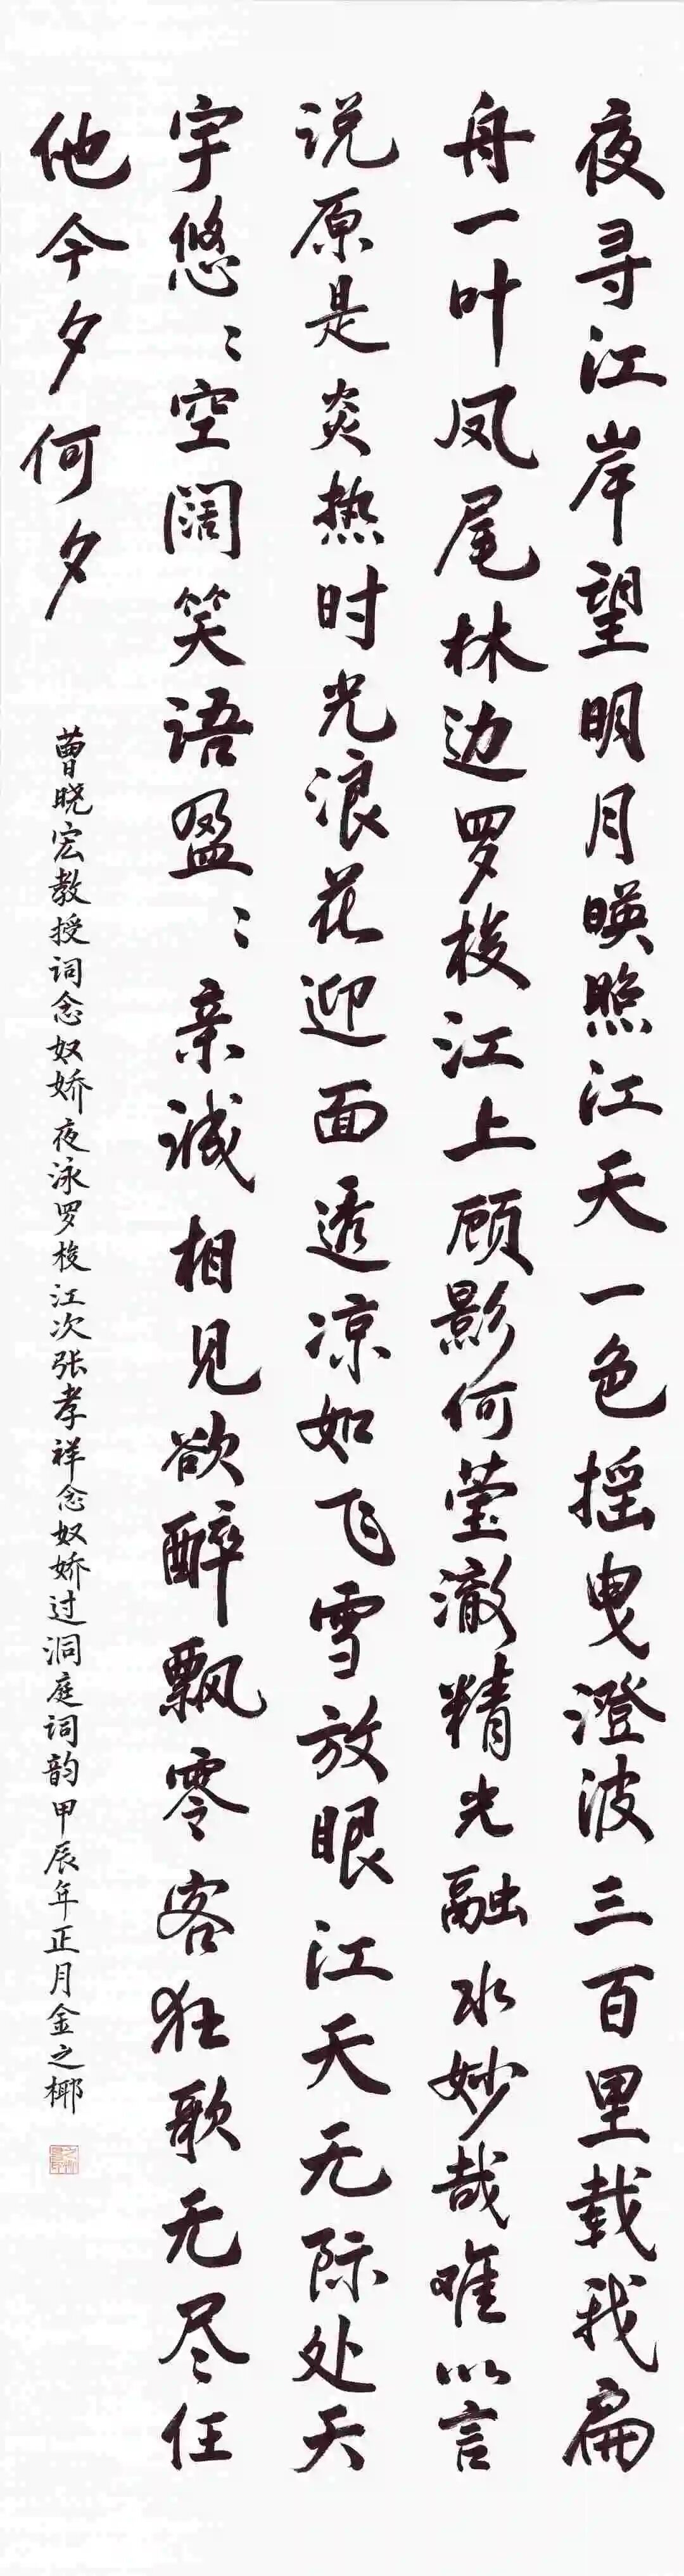 夜寻江岸望明月暎照江天一色摇曳澄波三百里载我扁
舟一叶凤尾林边罗梭江上顾影何莹澈精光融水妙哉难以言
说原是炎热时光浪花迎面透凉如飞雪放眼江天无际处天
宇悠〻空阔笑语盈〻亲诚相见欲醉飘零客狂歌无尽任
他今夕何夕
曹晓宏教授词念奴娇夜泳罗梭江次张孝祥念奴娇过洞庭词韵甲辰年正月金之椰